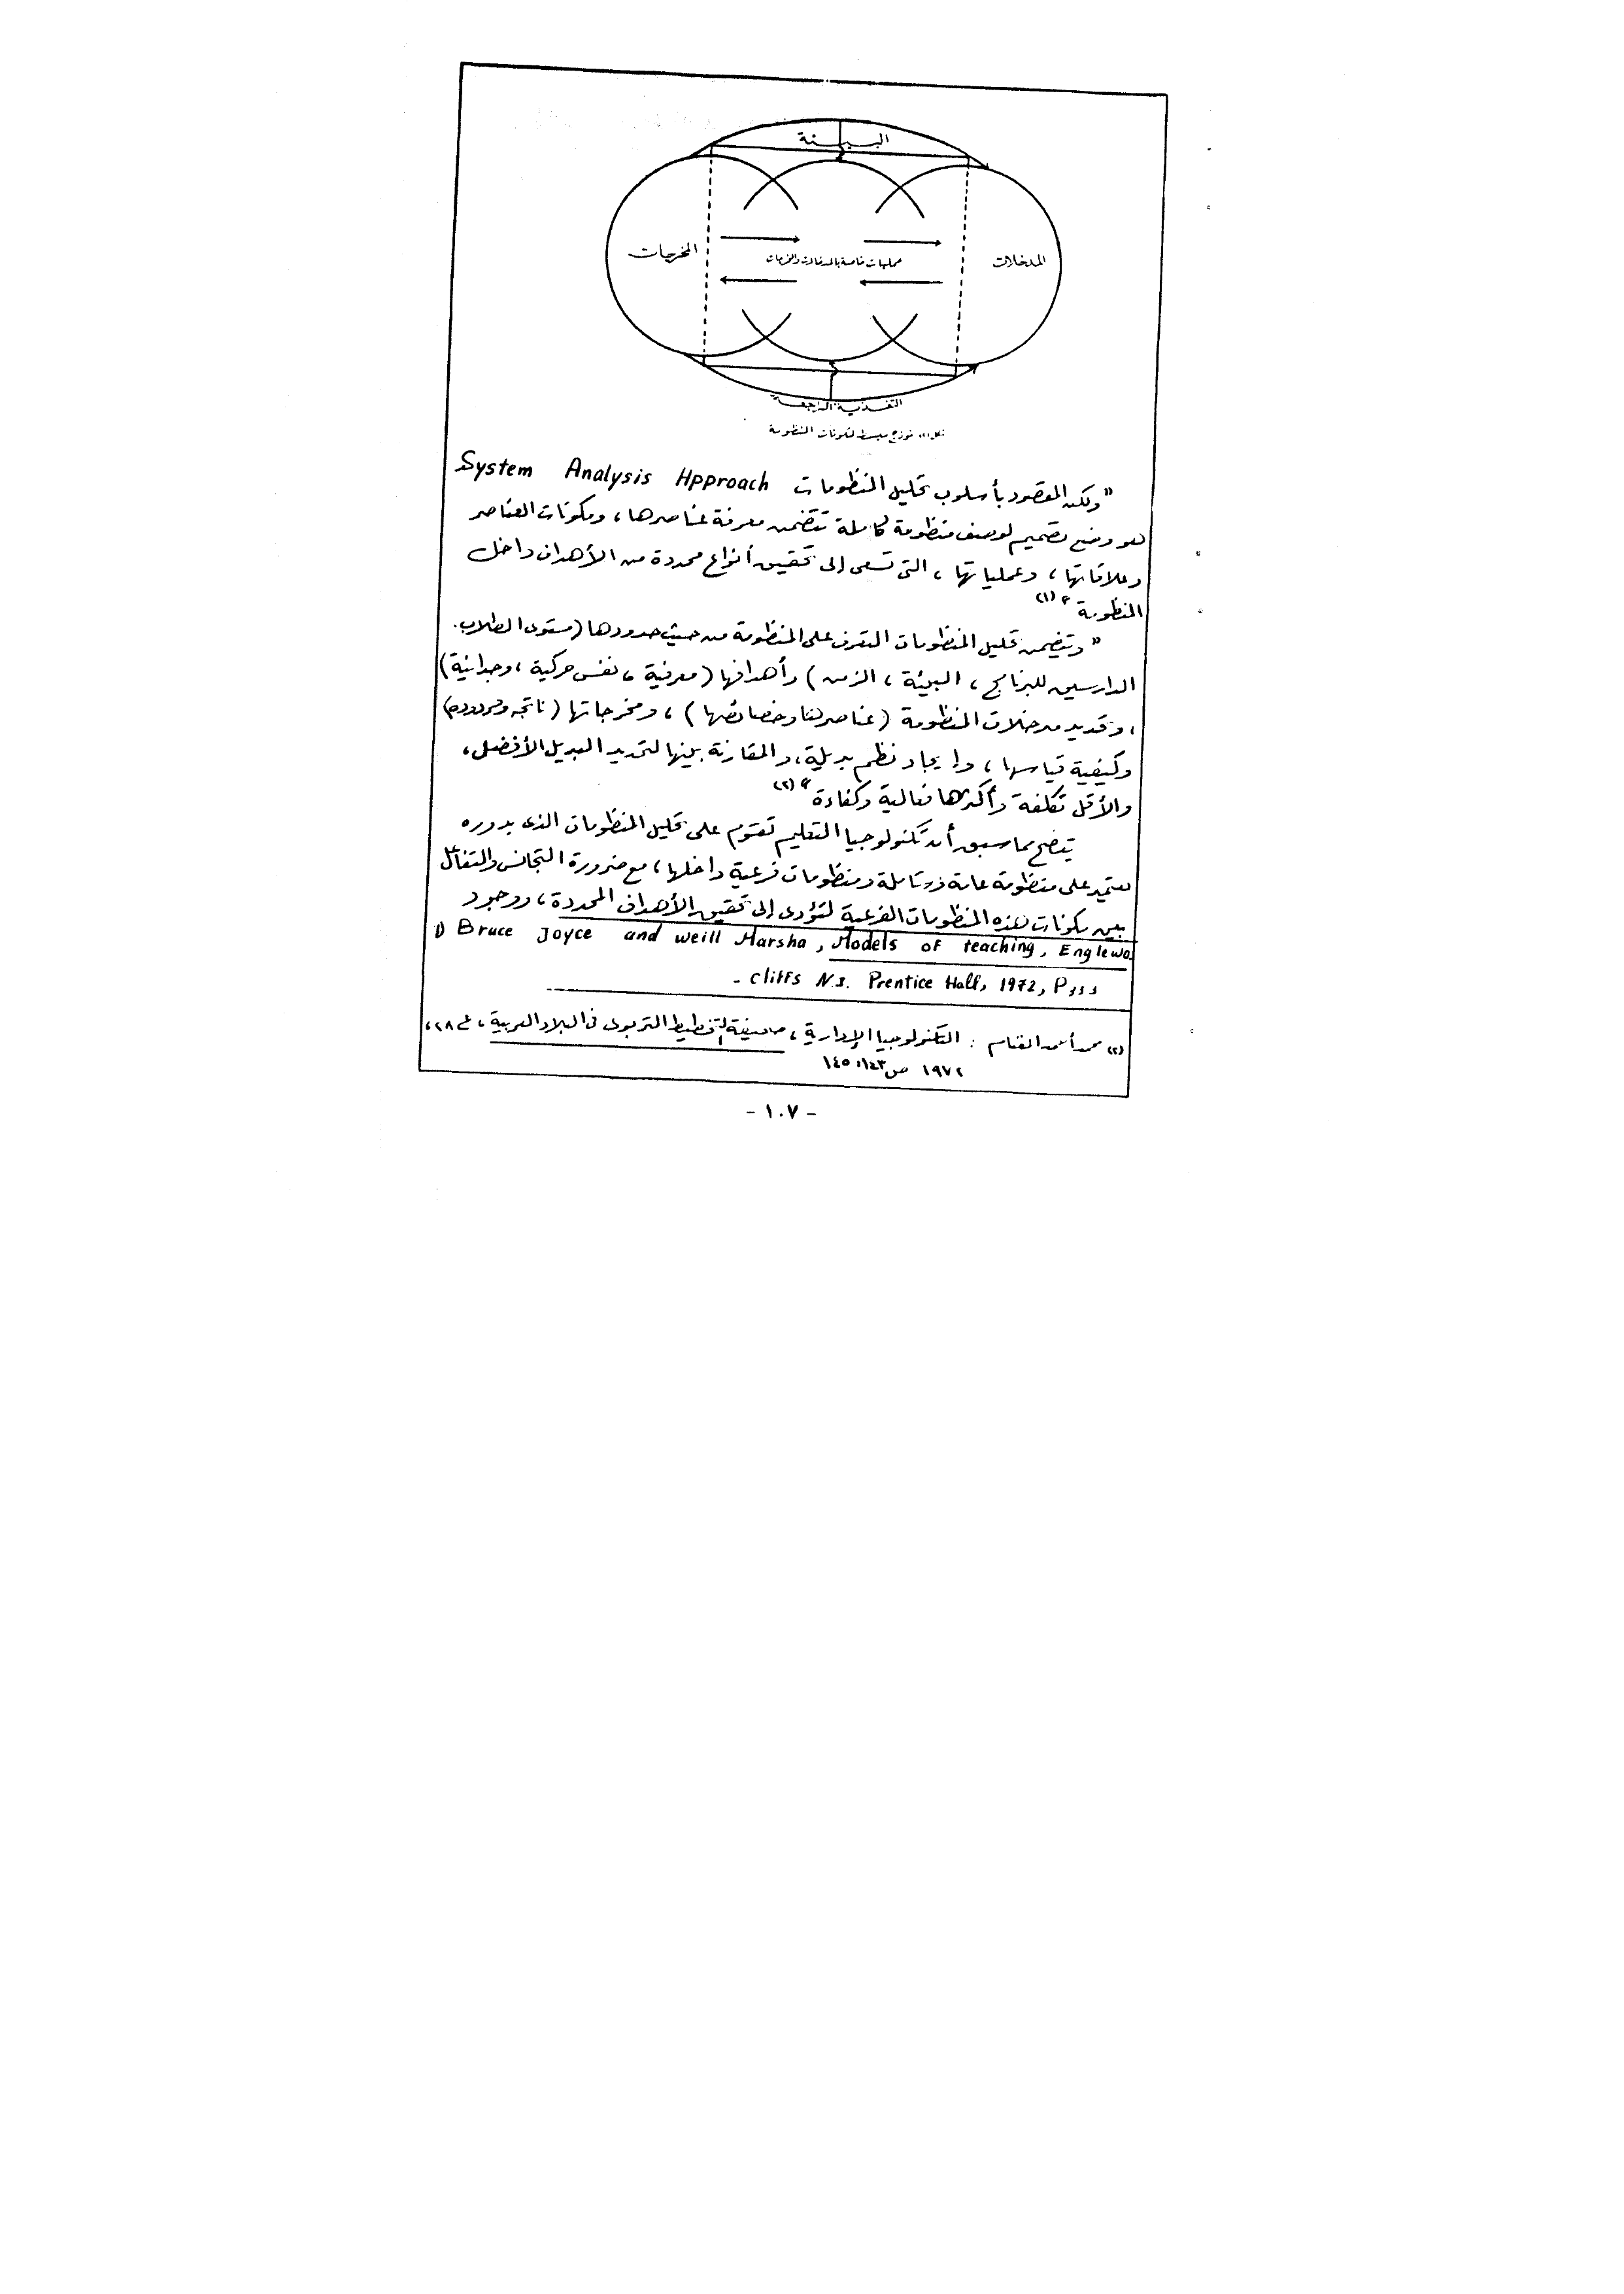 البيئة
المدخلات
عمليات خاصة بالمدخلات والمخرجات
المخرجات
التغذية الراجعة
شكل (١) نموذج مبسط لمكونات المنظومة
" ولكن المقصود بأسلوب تحليل المنظومات System Analysis Approach
هو وضع تصميم لوصف منظومة كاملة تتضمن معرفة عناصرها، ومكونات العناصر
وعلاقاتها، وعملياتها، التى تسعى إلى تحقيق أنواع محددة من الأهداف داخل
المنظومة " (١)
" ويتضمن تحليل المنظومات التعرف على المنظومة من حيث حدودها (مستوى الطلاب.
الدارسين للبرنامج، البيئة، الزمن) وأهدافها (معرفية، نفس حركية، وجدانية)
، وتحديد مدخلات المنظومة (عناصرها وخصائصها)، ومخرجاتها (ناتجه ومردوده)
وكيفية قياسها، وإيجاد نظم بديلة، والمقارنة بينها لتحديد البديل الأفضل،
والأقل تكلفة وأكثرها فعالية وكفاءة " (٢)
يتضح مما سبق أن تكنولوجيا التعليم تقوم على تحليل المنظومات الذى بدوره
يعتمد على منظومة عامة وشاملة ومنظومات فرعية داخلها، مع ضرورة التجانس والتفاعل
بين مكونات هذه المنظومات الفرعية لتؤدى إلى تحقيق الأهداف المحددة، ووجود
1) Bruce Joyce and weill Marsha, Models of teaching, Englewo.
cliffs N.J. Prentice Hall, 1972, P
(٢) محمد أحمد الغنام : التكنولوجيا الإدارية، صحيفة التخطيط التربوى فى البلاد العربية، ع ٢٨،
١٩٧٢ ص ١٤٣، ١٤٥
- ١٠٧ -